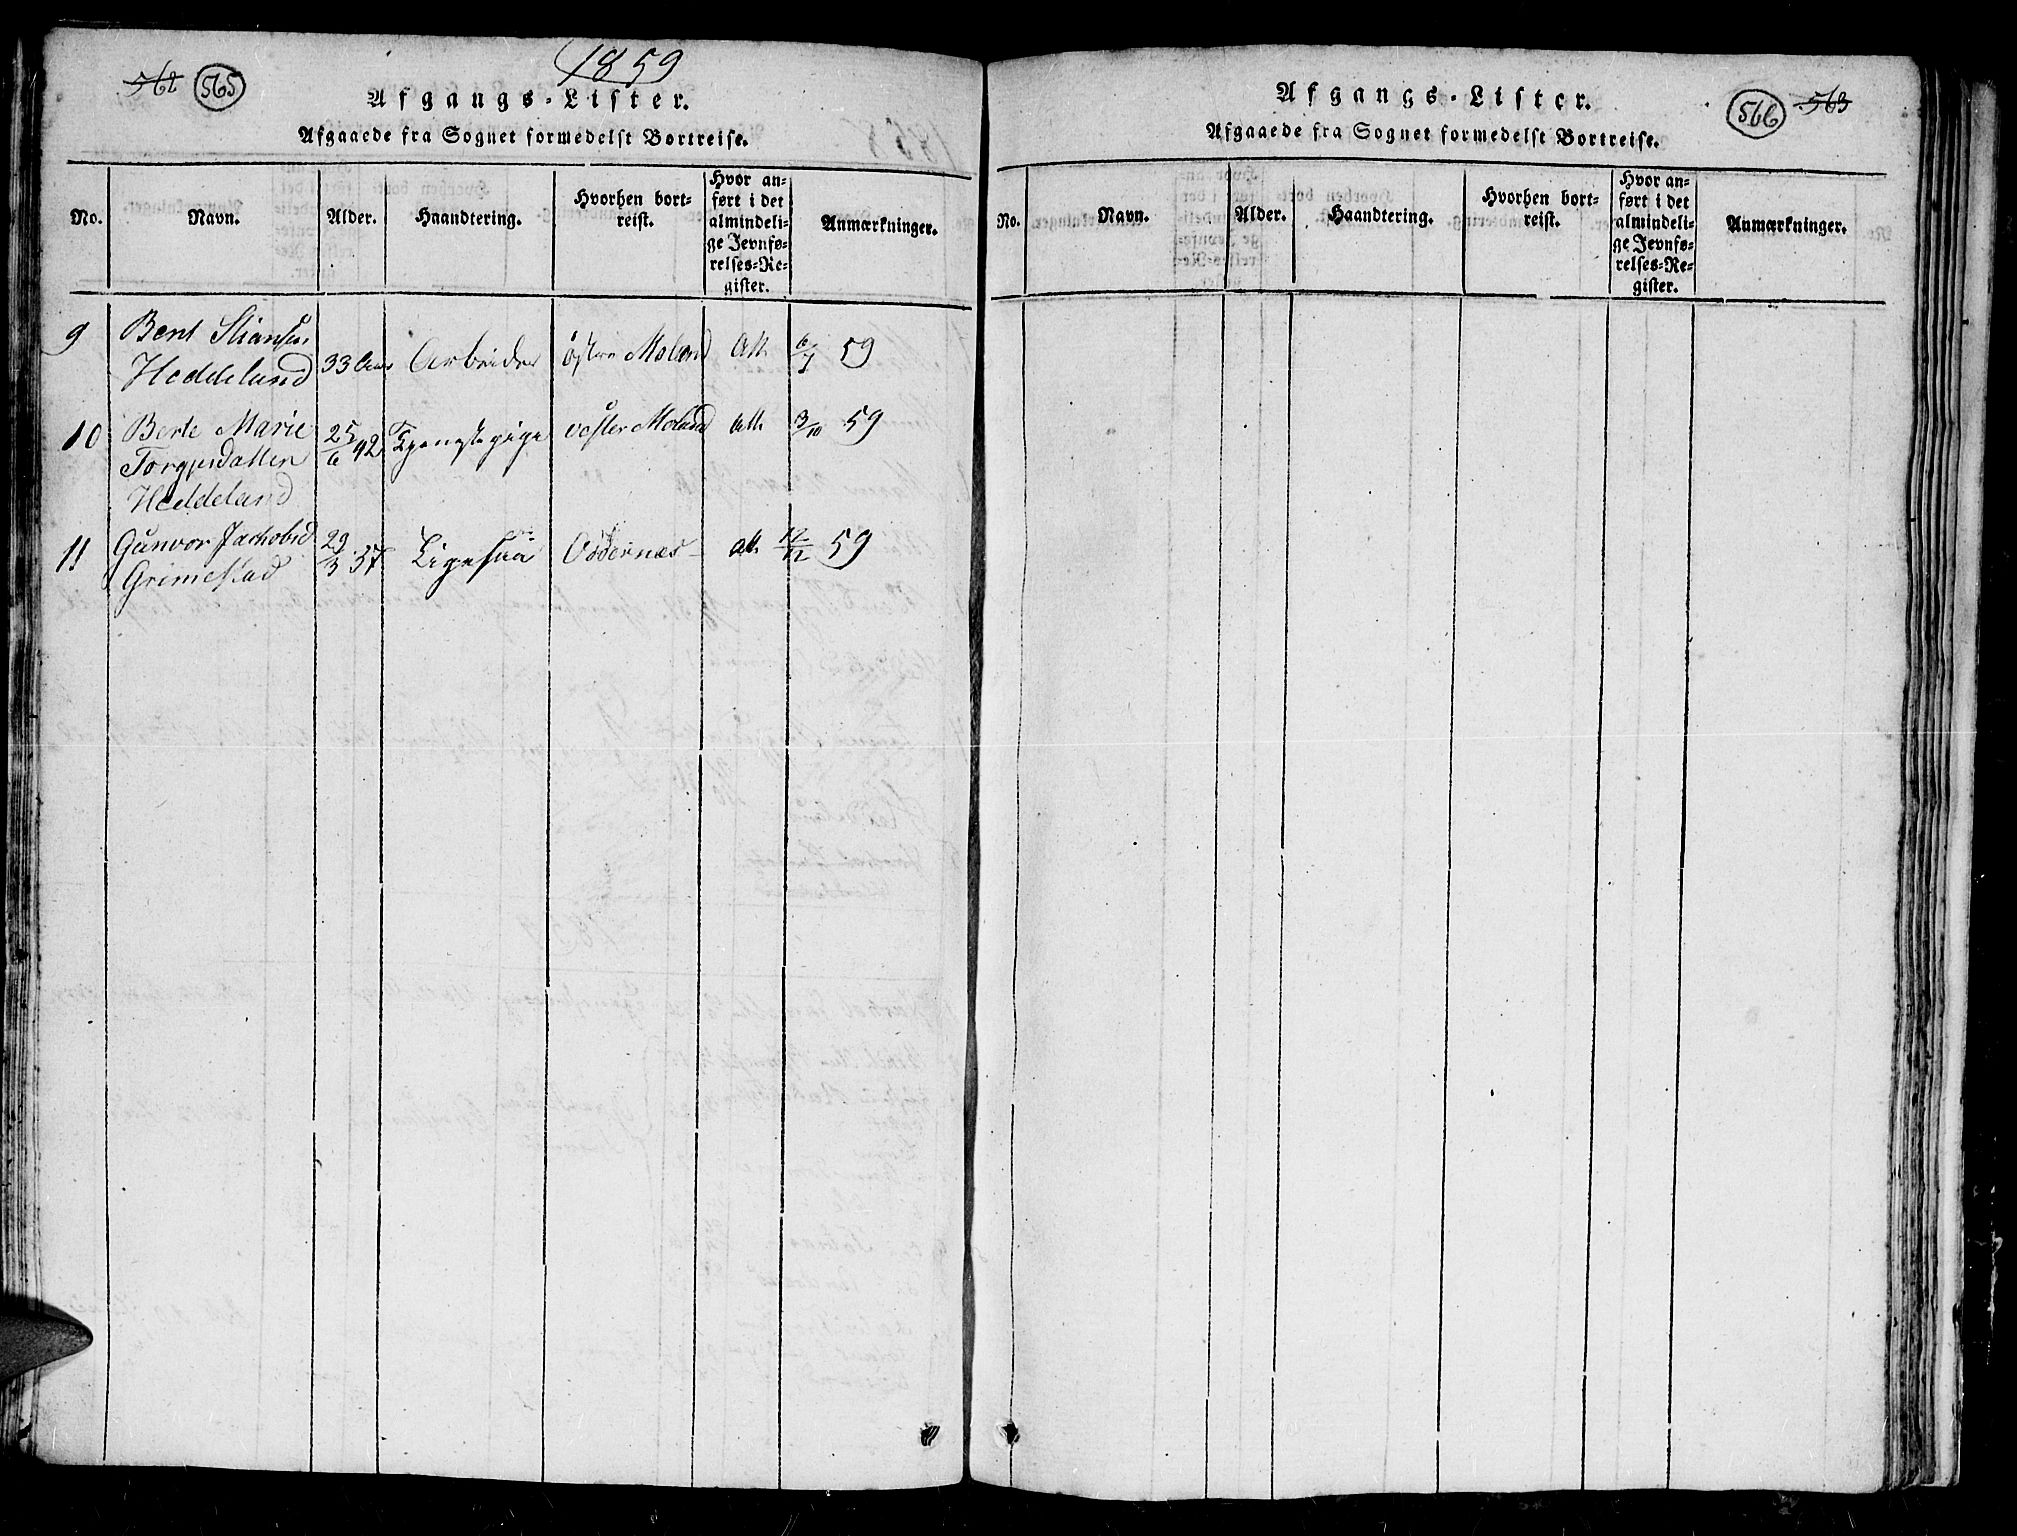 1859
562 565
Afgangs-Lister.
Afgaaede fra Sognet formedelst Bortreise.
No.
Navn.
Alder.
Haandtering.
Hvorhen bort-
reist.
Hvor an-
ført i det
almindeli-
ge Jevnfø-
relses-Re-
gister.
Anmærkninger.
9 Bent Stiansen
Heddeland 33 Aar Arbeider østre Moland Att 6/7 59
10 Berte Marie 25/6 42 Tjenestepige vester Moland Att 3/10 59
Torgjusdatter
Heddeland
11 Gunvor Jachobsd 29/3 37 Ligesaa Oddernæs Att 12/12 59
Grimestad
566 563
Afgangs-Lister.
Afgaaede fra Sognet formedelst Bortreise.
No.
Navn.
Alder.
Haandtering.
Hvorhen bort-
reist.
Hvor an-
ført i det
almindeli-
ge Jevnfø-
relses-Re-
gister.
Anmærkninger.